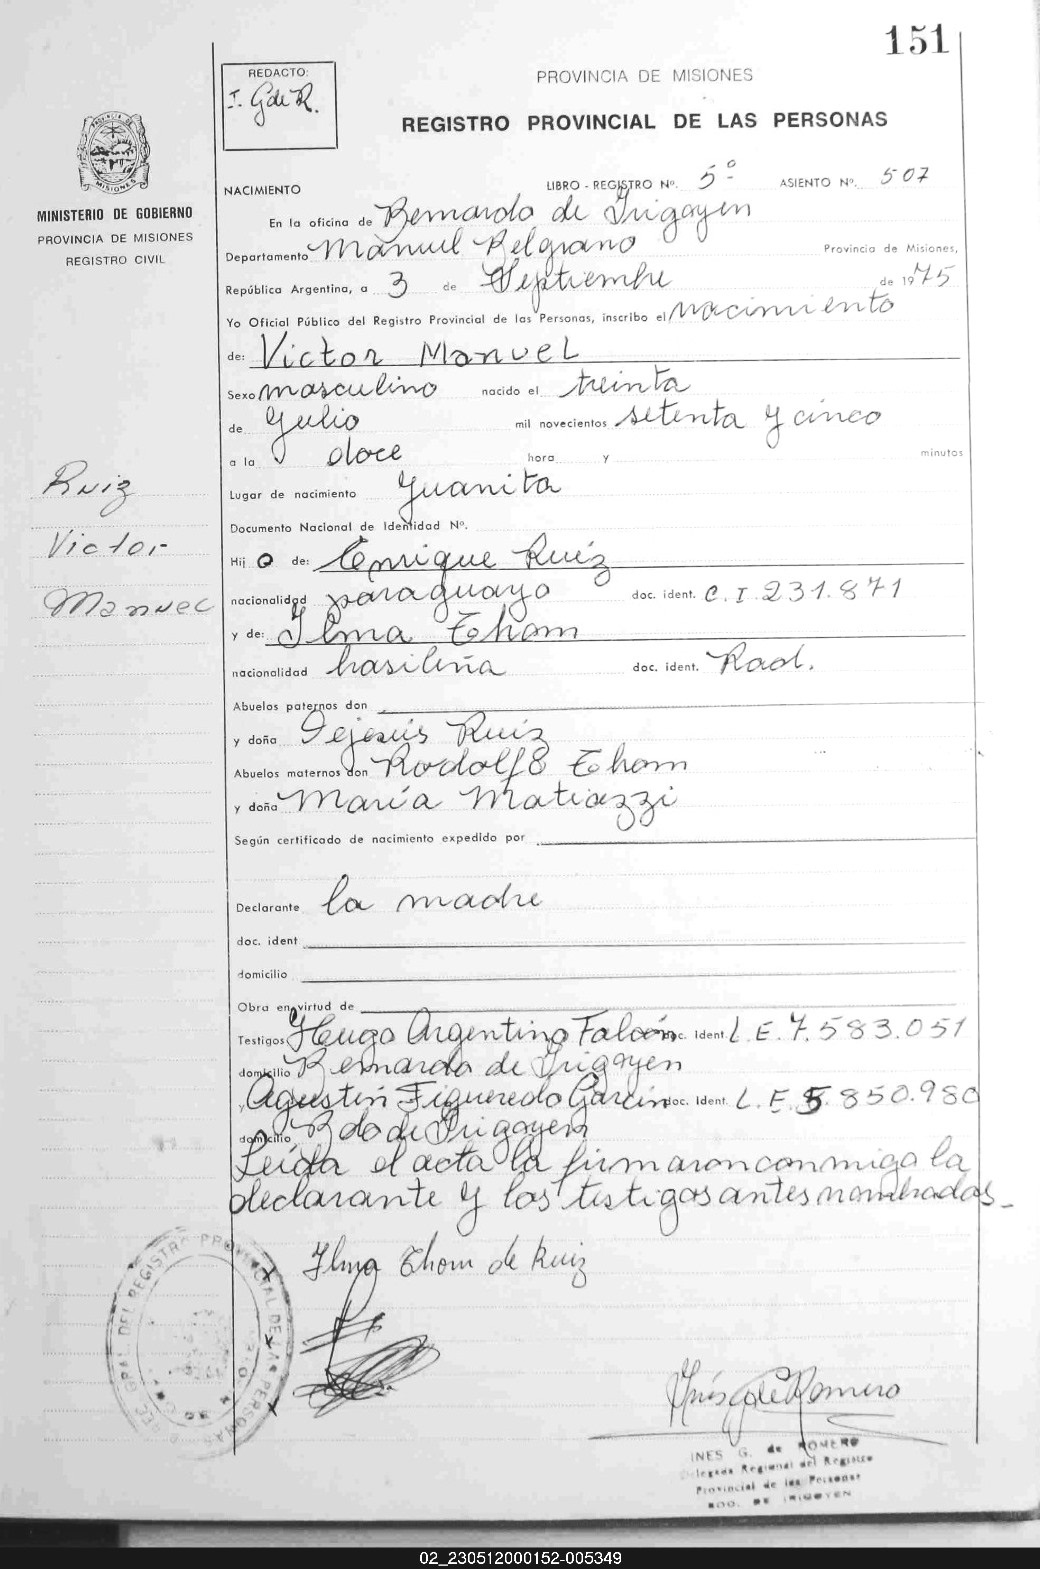 151
REDACTO:
I. G de R.
PROVINCIA DE MISIONES
REGISTRO PROVINCIAL DE LAS PERSONAS
MINISTERIO DE GOBIERNO
PROVINCIA DE MISIONES
REGISTRO CIVIL
NACIMIENTO LIBRO - REGISTRO Nº. 5º ASIENTO Nº. 507
En la oficina de Bernardo de Irigoyen
Departamento Manuel Belgrano Provincia de Misiones,
República Argentina, a 3 de Septiembre de 1975
Yo Oficial Público del Registro Provincial de las Personas, inscribo el nacimiento
de: Victor Manuel
Sexo masculino nacido el treinta
de Julio mil novecientos setenta y cinco
a la doce hora y minutos
Ruiz
Victor
Manuel
Lugar de nacimiento Juanita
Documento Nacional de Identidad Nº.
Hijo de: Enrique Ruiz
nacionalidad paraguayo doc. ident. C.I. 231.871
y de: Ilma Thom
nacionalidad brasileña doc. ident. Rad.
Abuelos paternos don
y doña Dejesús Ruiz
Abuelos maternos don Rodolfo Thom
y doña María Matiazzi
Según certificado de nacimiento expedido por
Declarante la madre
doc. ident
domicilio
Obra en virtud de
Testigos Hugo Argentino Falcón doc. Ident. L.E. 7.583.051
domicilio Bernardo de Irigoyen
y Agustín Figueredo Garcín doc. Ident. L.E. 5.850.980
domicilio Bdo de Irigoyen
Leída el acta la firmaron conmigo la
declarante y los testigos antes nombrados_
Ilma Thom de Ruiz
Inés G de Romero
INES G. de ROMERO
Delegada Regional del Registro
Provincial de las Personas
BDO. DE IRIGOYEN
02_230512000152-005349